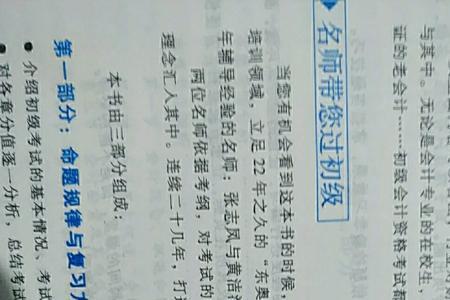 与其中。无论是会计专业的在校生，
证的老会计……初级会计资格考试都
名师带您过初级
当您有机会看到这本书的时候
培训领域，立足 22 年之久的“东奥
年辅导经验的名师：张志凤与黄洁洵
两位名师依据考纲，对考试的
理念汇入其中。连续二十几年，打造
本书由三部分组成：
第一部分：命题规律与复习方
● 介绍初级考试的基本情况、考试
● 对各章分值逐一分析，总结考试